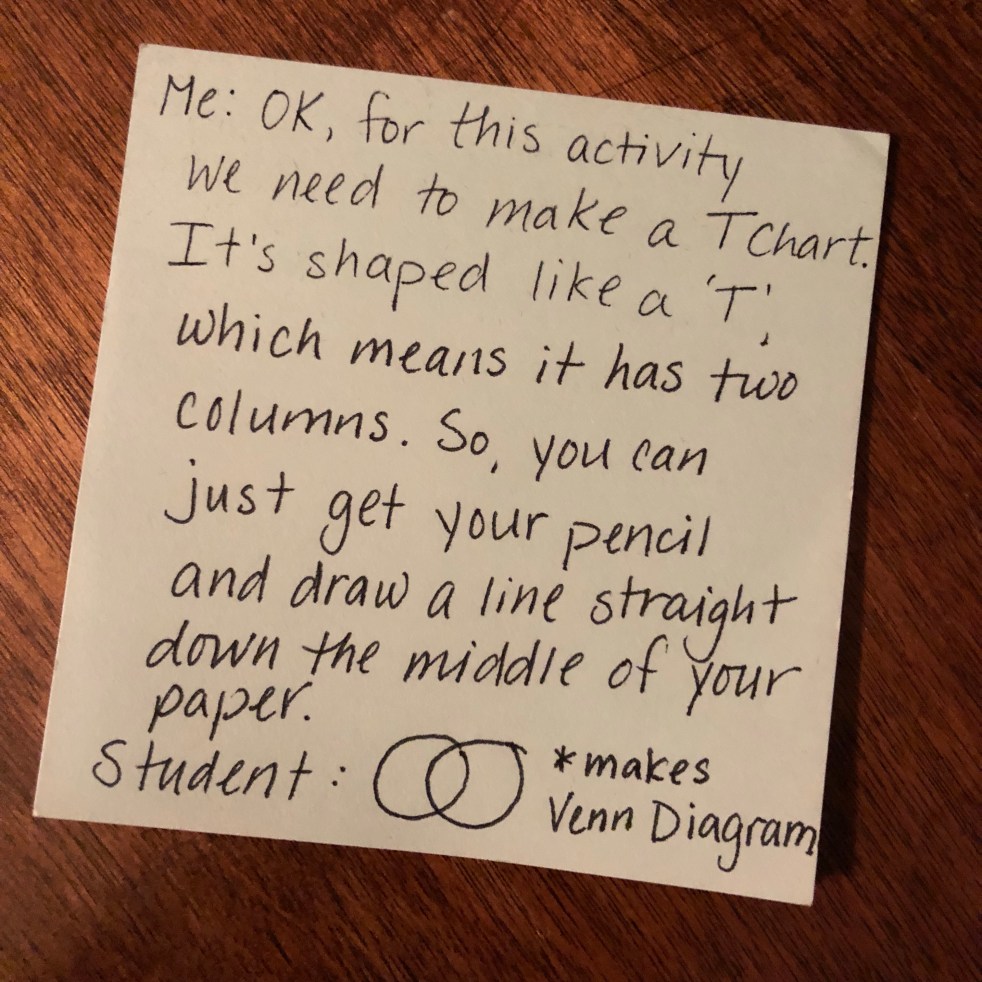 Me: OK, for this activity
we need to make a T Chart.
It's shaped like a 'T',
which means it has two
columns. So, you can
just get your pencil
and draw a line straight
down the middle of your
paper.
Student: *makes
Venn Diagram